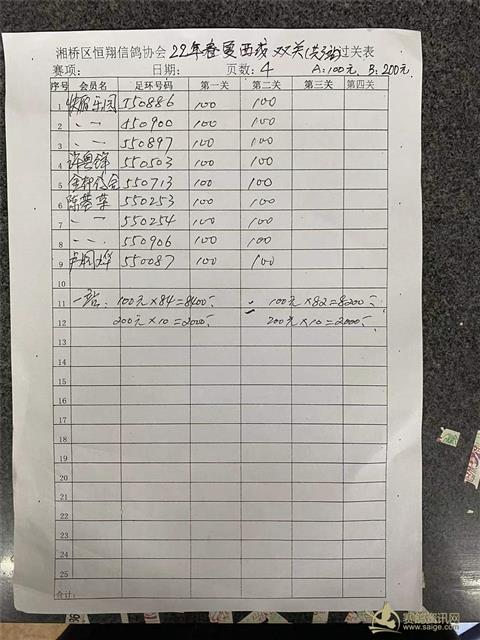 湘桥区恒翔信鸽协会 22年春夏西线 双关(关站)过关表
赛项: 日期: 页数: 4 A:100元 B:200元
序号 会员名 足环号码 第一关 第二关 第三关 第四关
1 乐园 550886 100 100
2 〃 550900 100 100
3 〃 550897 100 100
4 550503 100 100
5 550713 100 100
6 550253 100 100
7 〃 550254 100 100
8 〃 550906 100 100
9 550087 100 100
10
11 一站: 100元×84=8400 100元×82=8200
12 200元×10=2000 200元×10=2000
13
14
15
16
17
18
19
20
21
22
23
24
25
合计:
赛鸽资讯网
www.saige.com